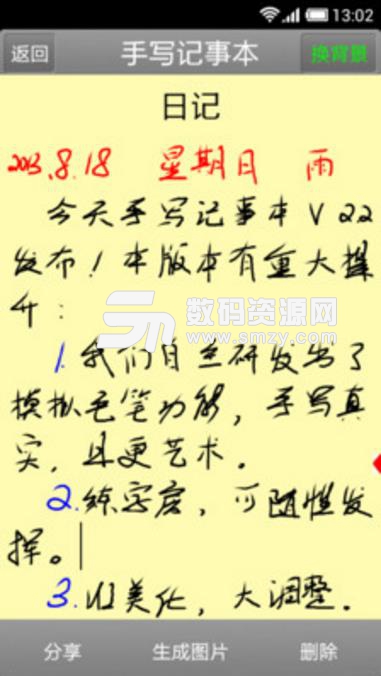 13:02
返回 手写记事本 换背景
日记
2013.8.18 星期日 雨
今天手写记事本V2.2
发布！本版本有重大提
升：
数码资源网
www.smzy.com
1.我们自主研发出了
模拟毛笔功能，手写真
实，且更艺术。
2.练字君，可随性发
挥。
3.UI美化，大调整。
分享 生成图片 删除